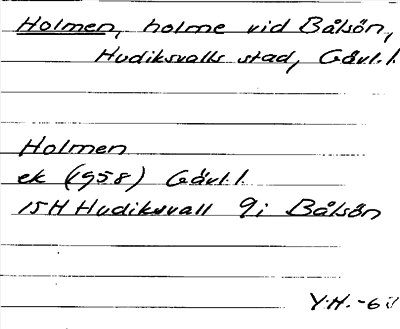 Holmen, holme vid Bålsön,
Hudiksvalls stad, Gävl.l.
Holmen
ek (1958) Gävl.l.
15H Hudiksvall 9i Bålsön
Y.H.